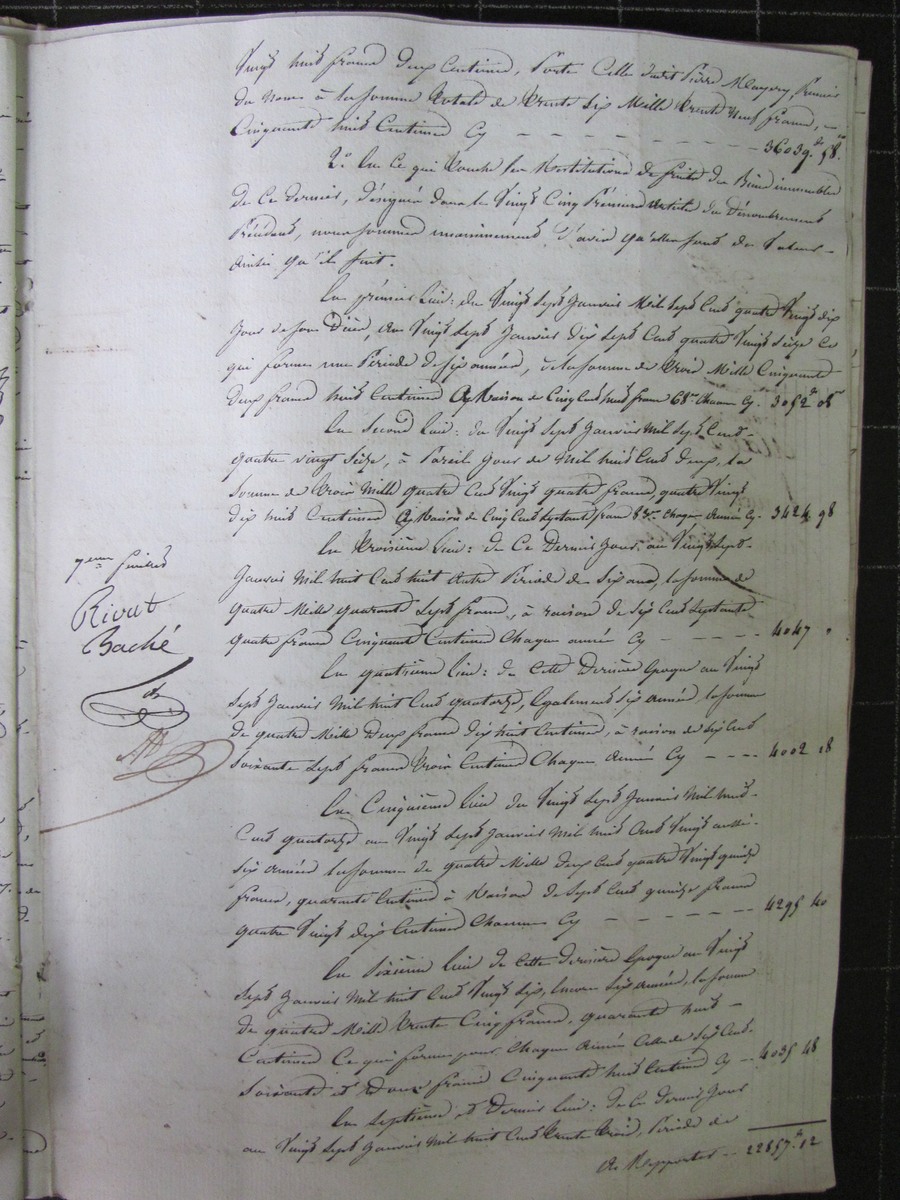 Vingt huit francs deux centimes, Porte Celle dudit Pierre premier
du nom à la somme totale de trente six Mille trente neuf francs, —
Cinquante huit Centimes Cy - - - - - - - 36039.# 58.
2.° En Ce qui touche les Restitutions de fruits des Biens immeubles
de Ce dernier, désignés dans les Vingt Cinq Premiers article du Dénombrement
Précédent, nous sommes unanimement d'avis qu'elles sont de Valeur -
ainsi qu'il suit.
En prémier Lieu: du Vingt sept Janvier Mil sept Cent quatre Vingt dix
Jour de son Décès, au Vingt sept Janvier dix sept Cent quatre Vingt seize Ce
qui forme une Période de six années, de la somme de trois Mille Cinquante
deux francs huit Centimes à Raison de Cinq Cent huit francs 68 Chacune Cy. 3052# 08
En Second Lieu: du Vingt Sept Janvier Mil Sept Cent
quatre vingt seize, à Pareil Jour de Mil huit Cent deux, la
somme de trois Mille quatre Cent Vingt quatre francs, quatre Vingt
dix huit Centimes à Raison de Cinq Cent septante francs 83 Chaque année Cy. 3424 98
En troisième Lieu: de Ce Dernier Jour, au Vingt sept
Janvier Mil huit Cent huit autre Période de six ans, la somme de
quatre Mille quarante sept francs, à raison de six Cent septante
quatre francs Cinquante Centimes Chaque année Cy - - - - - 4047 "
En quatrième Lieu: de Cette Dernière époque au Vingt
sept Janvier Mil huit Cent quatorze, également six années, la somme
de quatre Mille Deux francs dix huit Centimes, à raison de six Cent
soixante sept francs trois Centimes Chaque année Cy - - - - 4002 18
En Cinquième Lieu du Vingt sept Janvier Mil huit
Cent quatorze au Vingt sept Janvier Mil huit Cent Vingt aussi
six années la somme de quatre Mille deux Cent quatre Vingt quinze
francs, quarante Centimes à Raison de sept Cent quinze francs
quatre Vingt dix Centimes Chacune Cy - - - - - - - 4295 40
En Sixième Lieu de Cette dernière époque au Vingt
sept Janvier Mil huit Cent Vingt six, encore six années, la somme
de quatre Mille trente Cinq francs, quarante huit -
Centimes Ce qui forme pour Chaque année Celle de six Cent
soixante et Douze francs Cinquante huit Centimes Cy - 4035 48
En Septième et Dernier Lieu: de Ce Dernier Jour
au Vingt sept Janvier Mil huit Cent trente trois, Période de
à Rapporter - 22857.# 12
7eme feuillet
Rivat
Baché